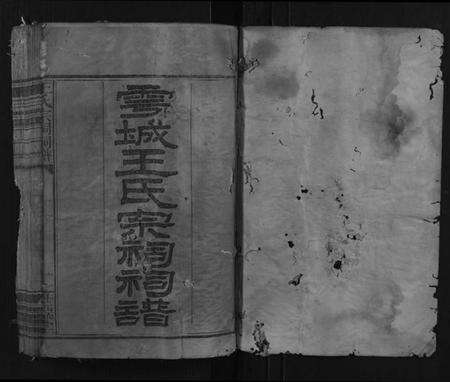 雩城王氏宗祠祠譜